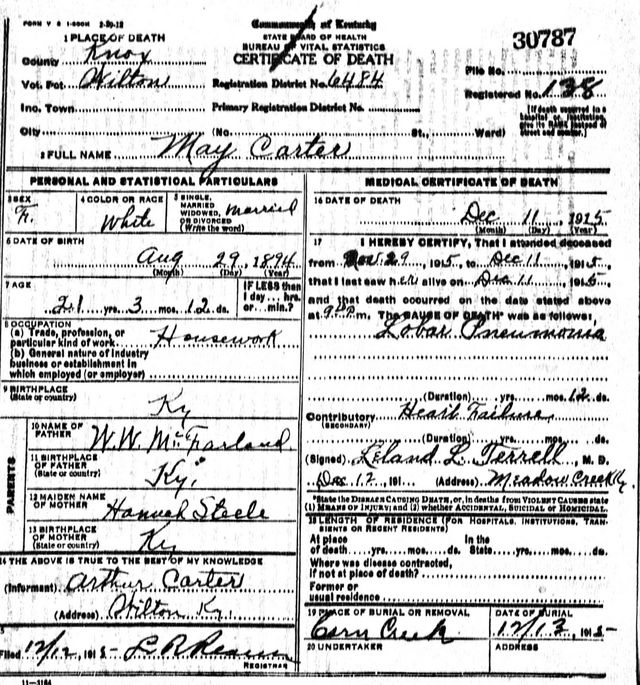 FORM V S 1-500M 2-20-12
Commonwealth of Kentucky
STATE BOARD OF HEALTH
BUREAU OF VITAL STATISTICS
CERTIFICATE OF DEATH
30787
1 PLACE OF DEATH
County Knox
Vot. Pct. Wilton
Registration District No. 6484
File No.
Registered No. 138
Inc. Town
Primary Registration District No.
[If death occurred in a hospital or institution, give its NAME instead of street and number.]
City (No. St., Ward)
2 FULL NAME May Carter
PERSONAL AND STATISTICAL PARTICULARS
3 SEX F.
4 COLOR OR RACE White
5 SINGLE, MARRIED WIDOWED, OR DIVORCED (Write the word) Married
6 DATE OF BIRTH
Aug 29, 1894
(Month) (Day) (Year)
7 AGE
21 yrs. 3 mos. 12 ds.
IF LESS than 1 day... hrs. or... min.?
8 OCCUPATION
(a) Trade, profession, or particular kind of work Housework
(b) General nature of industry
business or establishment in
which employed (or employer)
9 BIRTHPLACE
(State or country) Ky
PARENTS
10 NAME OF FATHER W.W. McFarland
11 BIRTHPLACE OF FATHER (State or country) Ky.
12 MAIDEN NAME OF MOTHER Hannah Steele
13 BIRTHPLACE OF MOTHER (State or country) Ky
14 THE ABOVE IS TRUE TO THE BEST OF MY KNOWLEDGE
(Informant) Arthur Carter
(Address) Wilton Ky.
15
Filed 12/12, 1915
REGISTRAR
11-3184
MEDICAL CERTIFICATE OF DEATH
16 DATE OF DEATH
Dec 11, 1915
(Month) (Day) (Year)
17 I HEREBY CERTIFY, That I attended deceased
from Nov. 29, 1915, to Dec 11, 1915,
that I last saw her alive on Dec 11, 1915,
and that death occurred on the date stated above
at 9 P.m. The CAUSE OF DEATH* was as follows:
Lobar Pneumonia
(Duration) yrs. mos. 12 ds.
Contributory Heart Failure
(SECONDARY)
(Duration) yrs. mos. ds.
(Signed) Leland L. Terrell, M. D.
Dec. 12, 191 (Address) Meadow Creek Ky.
*State the DISEASE CAUSING DEATH, or, in deaths from VIOLENT CAUSES state
(1) MEANS OF INJURY; and (2) whether ACCIDENTAL, SUICIDAL or HOMICIDAL.
18 LENGTH OF RESIDENCE (FOR HOSPITALS, INSTITUTIONS, TRANSIENTS OR RECENT RESIDENTS)
At place of death yrs. mos. ds.
In the State yrs. mos. ds.
Where was disease contracted,
if not at place of death?
Former or
usual residence
19 PLACE OF BURIAL OR REMOVAL
Corn Creek
DATE OF BURIAL
12/13, 1915
20 UNDERTAKER
ADDRESS